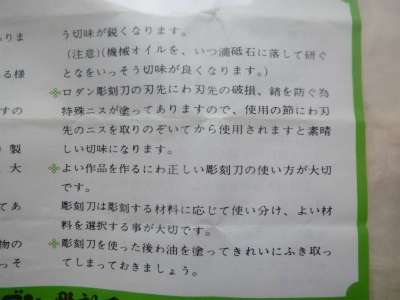 う切味が鋭くなります。
(注意)(機械オイルを、いつ滴砥石に落して研ぐ
となをいっそう切味が良くなります。)
※ロダン彫刻刀の刃先にわ刃先の破損、錆を防ぐ為
特殊ニスが塗ってありますので、使用の節にわ刃
先のニスを取りのぞいてから使用されますと素晴
しい切味になります。
※よい作品を作るにわ正しい彫刻刀の使い方が大切
です。
彫刻刀は彫刻する材料に応じて使い分け、よい材
料を選択する事が大切です。
※彫刻刀を使った後わ油を塗ってきれいにふき取っ
てしまっておきましょう。
りま
る様
すの
製
大
てあ
物の
っそ